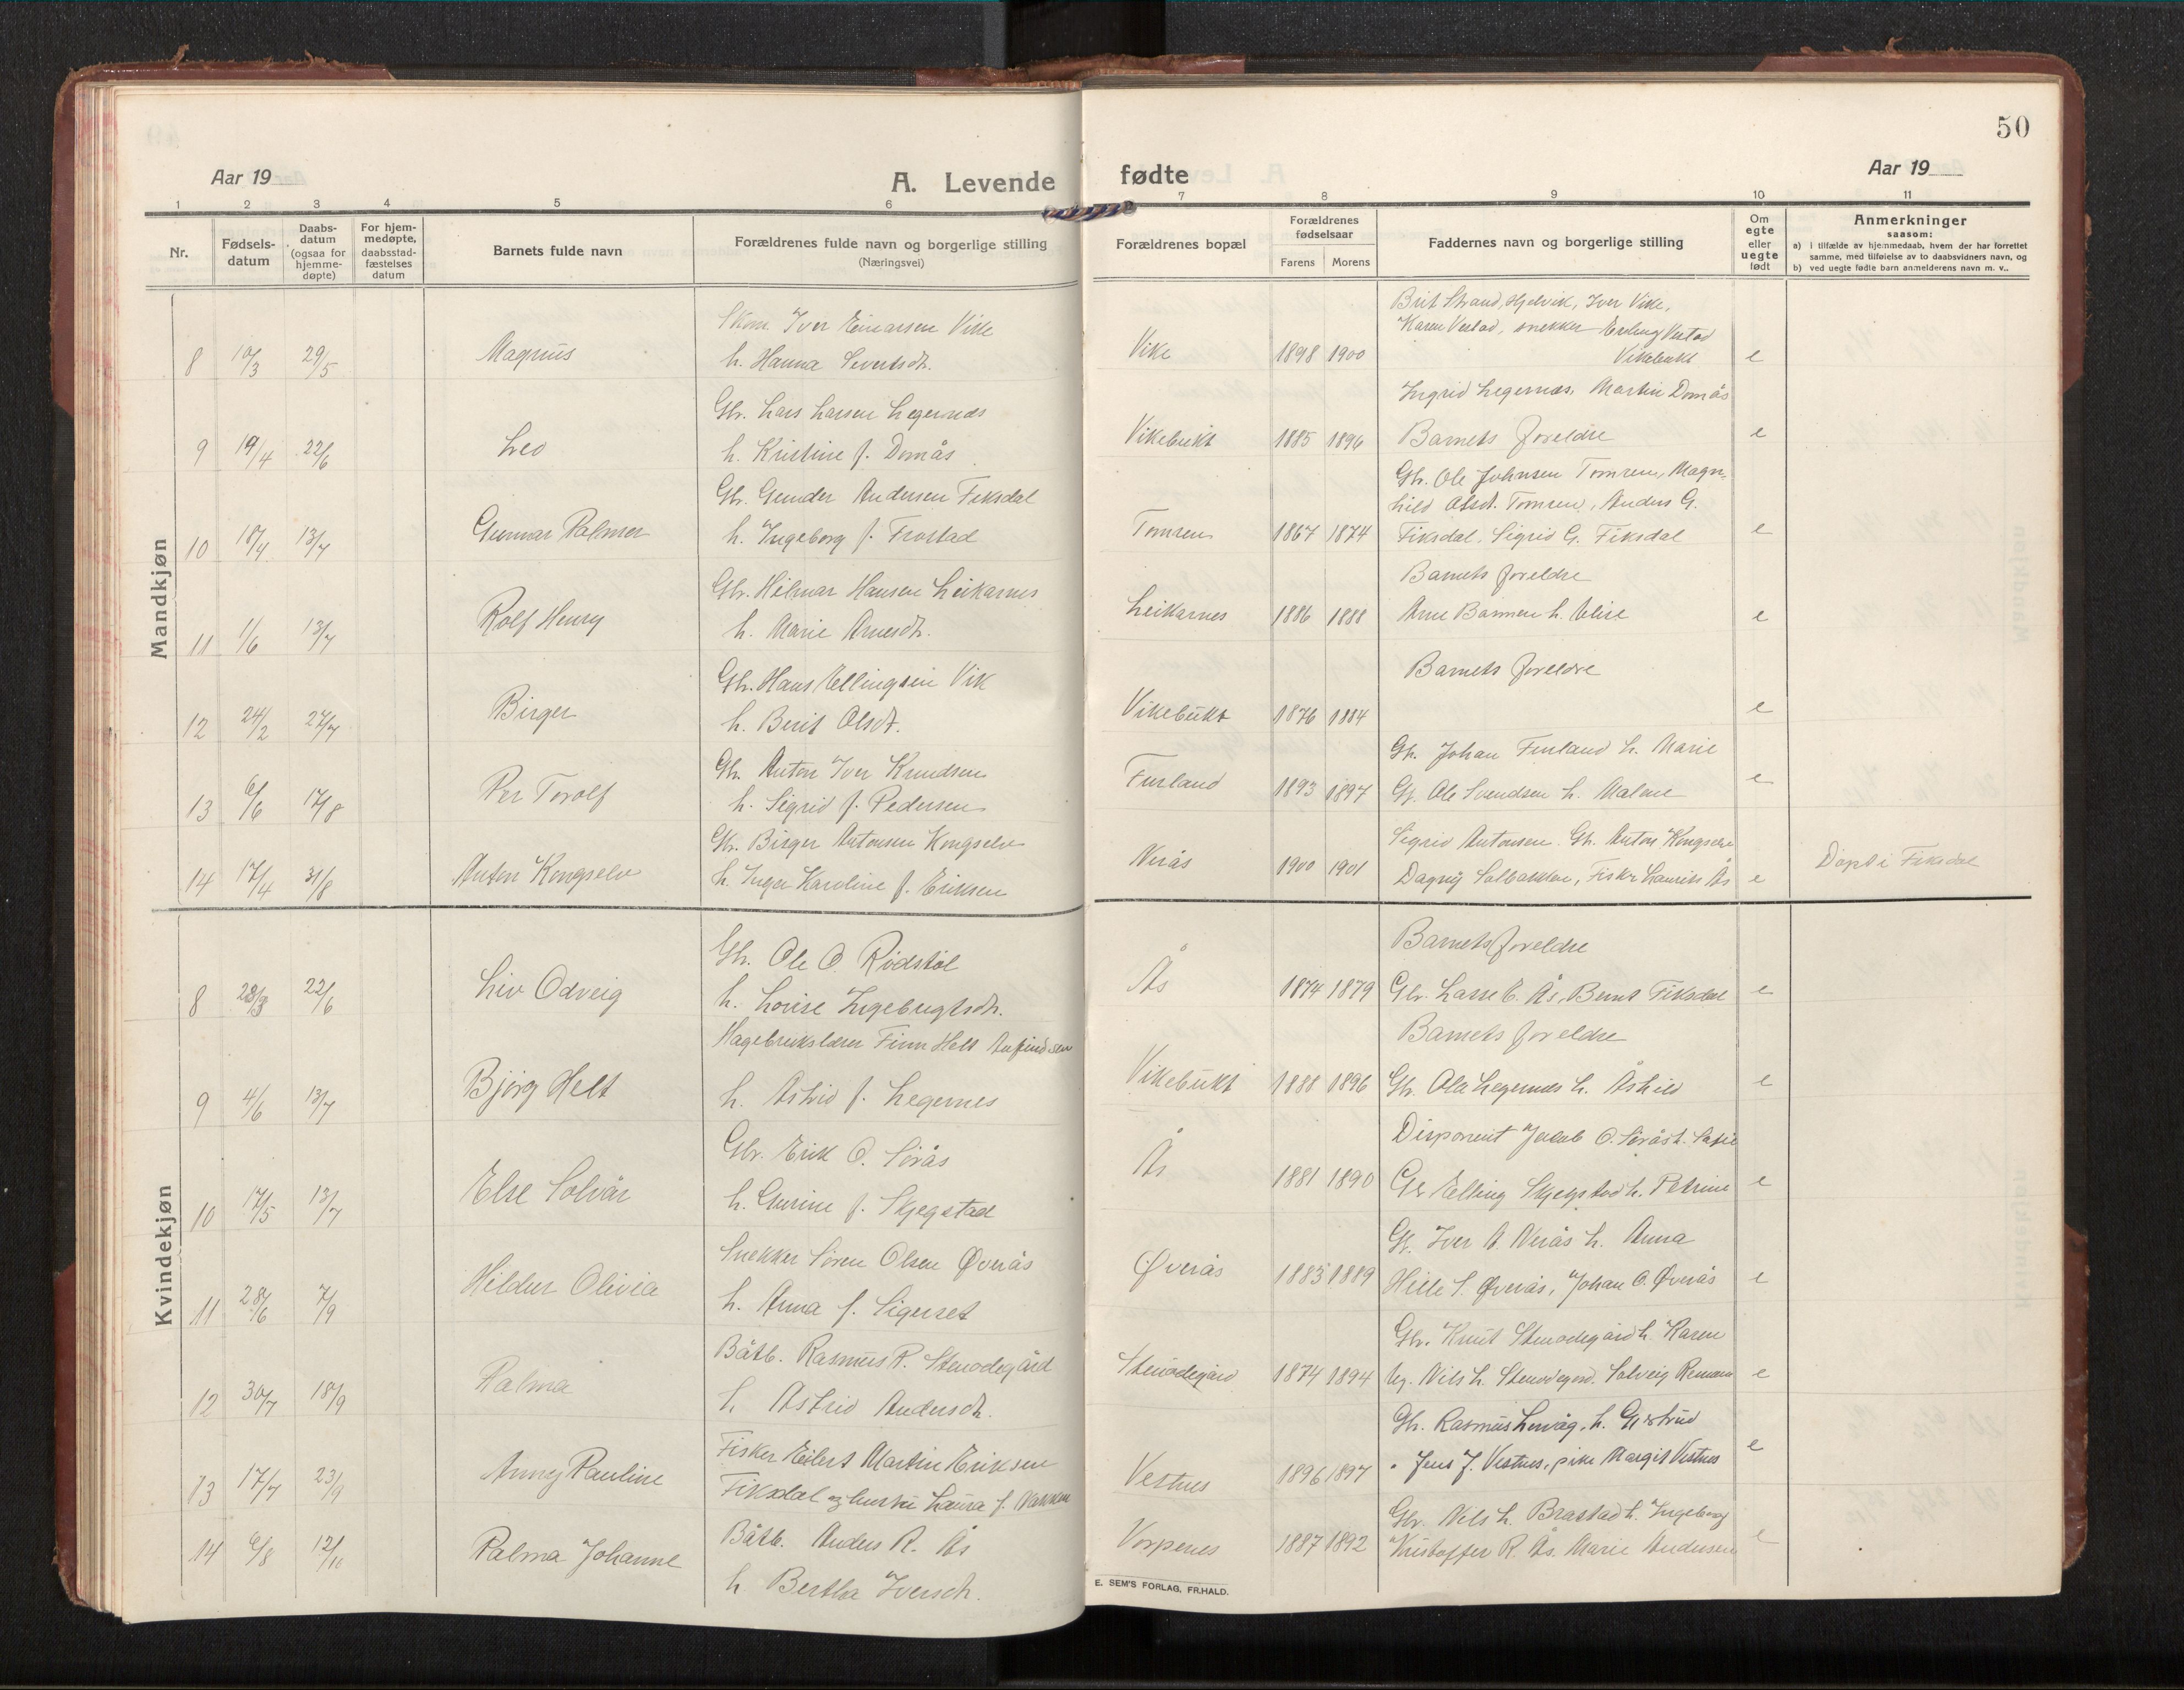 50
Aar 19
A. Levende fødte
Aar 19
1 2 3 4 5 6 7 8 9 10 11
Nr.
Fødsels-
datum
Daabs-
datum
(ogsaa for
hjemme-
døpte)
For hjem-
medøpte,
daabsstad-
fæstelses
datum
Barnets fulde navn
Forældrenes fulde navn og borgerlige stilling
(Næringsvei)
Forældrenes bopæl
Forældrenes
fødselsaar
Farens Morens
Faddernes navn og borgerlige stilling
Om
egte
eller
uegte
født
Anmerkninger
saasom:
a) i tilfælde av hjemmedaab, hvem der har forrettet
samme, med tilføielse av to daabsvidners navn, og
b) ved uegte fødte barn anmelderens navn m. v..
Mandkjøn
Skom. Iver Einarsen Vike
Brit Strand, Hjelvik, Iver Vike,
Karen Vestad, snekker Erling Vestad
8 10/3 29/5 Magnus h. Hanna Sivertsdt. Vike 1898 1900 Vikebukt e
Gbr. Lars Larsen Legernes
Ingrid Legernes, Martin Domås
9 19/4 22/6 Leo h. Kristine f. Domås Vikebukt 1885 1896 Barnets foreldre e
Gbr. Gunder Andersen Fiksdal
Gbr. Ole Johnsen Tomren, Magn-
hild Olsdt. Tomren, Anders G.
10 18/4 13/7 Gunnar Palmer h. Ingeborg f. Frostad Tomren 1867 1874 Fiksdal, Sigrid G. Fiksdal e
Gbr. Hilmar Hansen Leikarnes
Barnets foreldre
11 1/6 13/7 Rolf Henry h. Marie Arnesdt. Leikarnes 1886 1888 Arne Barmen h. Elise e
Gbr. Hans Ellingsen Vik
Barnets foreldre
12 24/2 27/7 Birger h. Berit Olsdt. Vikebukt 1876 1884 e
Gbr. Anton Iver Knudsen
Gbr. Johan Furland h. Marie
13 6/6 17/8 Per Torolf h. Sigrid f. Pedersen Furland 1893 1897 Gbr. Ole Svendsen h. Malene e
Gbr. Birger Antonsen Kongselv
Sigrid Antonsen. Gbr. Anton Kongselv
14 17/4 31/8 Anton Kongselv h. Inger Karoline f. Eriksen Nerås 1900 1901 Dagny Solbakken, Fisker Laurits Ås e Døpt i Fiksdal
Kvindekjøn
Gbr. Ole O. Rødstøl
Barnets foreldre
8 28/3 22/6 Liv Odveig h. Lovise Ingebrigtsdt. Ås 1874 1879 Gbr. Lasse E. Ås, Bernt Fiksdal e
Hagebrukslærer Finn Helt Anfindsen
Barnets foreldre
9 4/6 13/7 Bjørg Helt h. Astrid f. Legernes Vikebukt 1888 1896 Gbr. Ola Legernes h. Åshild e
Gbr. Erik O. Sørås
Disponent Jacob O. Sørås h.
10 17/5 13/7 Else Solvår h. Gurine f. Skjegstad Ås 1881 1890 Gbr Elling Skjegstad h. Petrine e
Snekker Søren Olsen Øverås
Gbr. Iver A. Nerås h. Anna
11 28/6 7/9 Hildur Olivia h. Anna f. Sigerset Øverås 1885 1889 Hille S. Øverås, Johan O. Øverås e
Båtb. Rasmus R. Stenodegård
Gbr. Knut Stenodegård h. Karen
12 30/7 18/9 Palma h. Astrid Andersdt. Stenodegård 1874 1894 Ug. Nils L. Stenodegård. Solveig Remmem e
Fisker Eilert Martin Eriksen
Gbr. Rasmus Lervåg, h. Gjertrud
13 17/7 23/9 Anny Pauline Fiksdal og hustru Laura f. Vestnes 1896 1897 " Jens J. Vestnes, pike Margit Vestnes e
Båtb. Anders R. Ås
Gbr. Nils L. Brastad h. Ingeborg
14 6/8 12/10 Palma Johanne h. Bertha Iversdt. Vorpenes 1887 1892 Kristoffer R. Ås. Marie Andersen e
E. SEM'S FORLAG, FR.HALD.